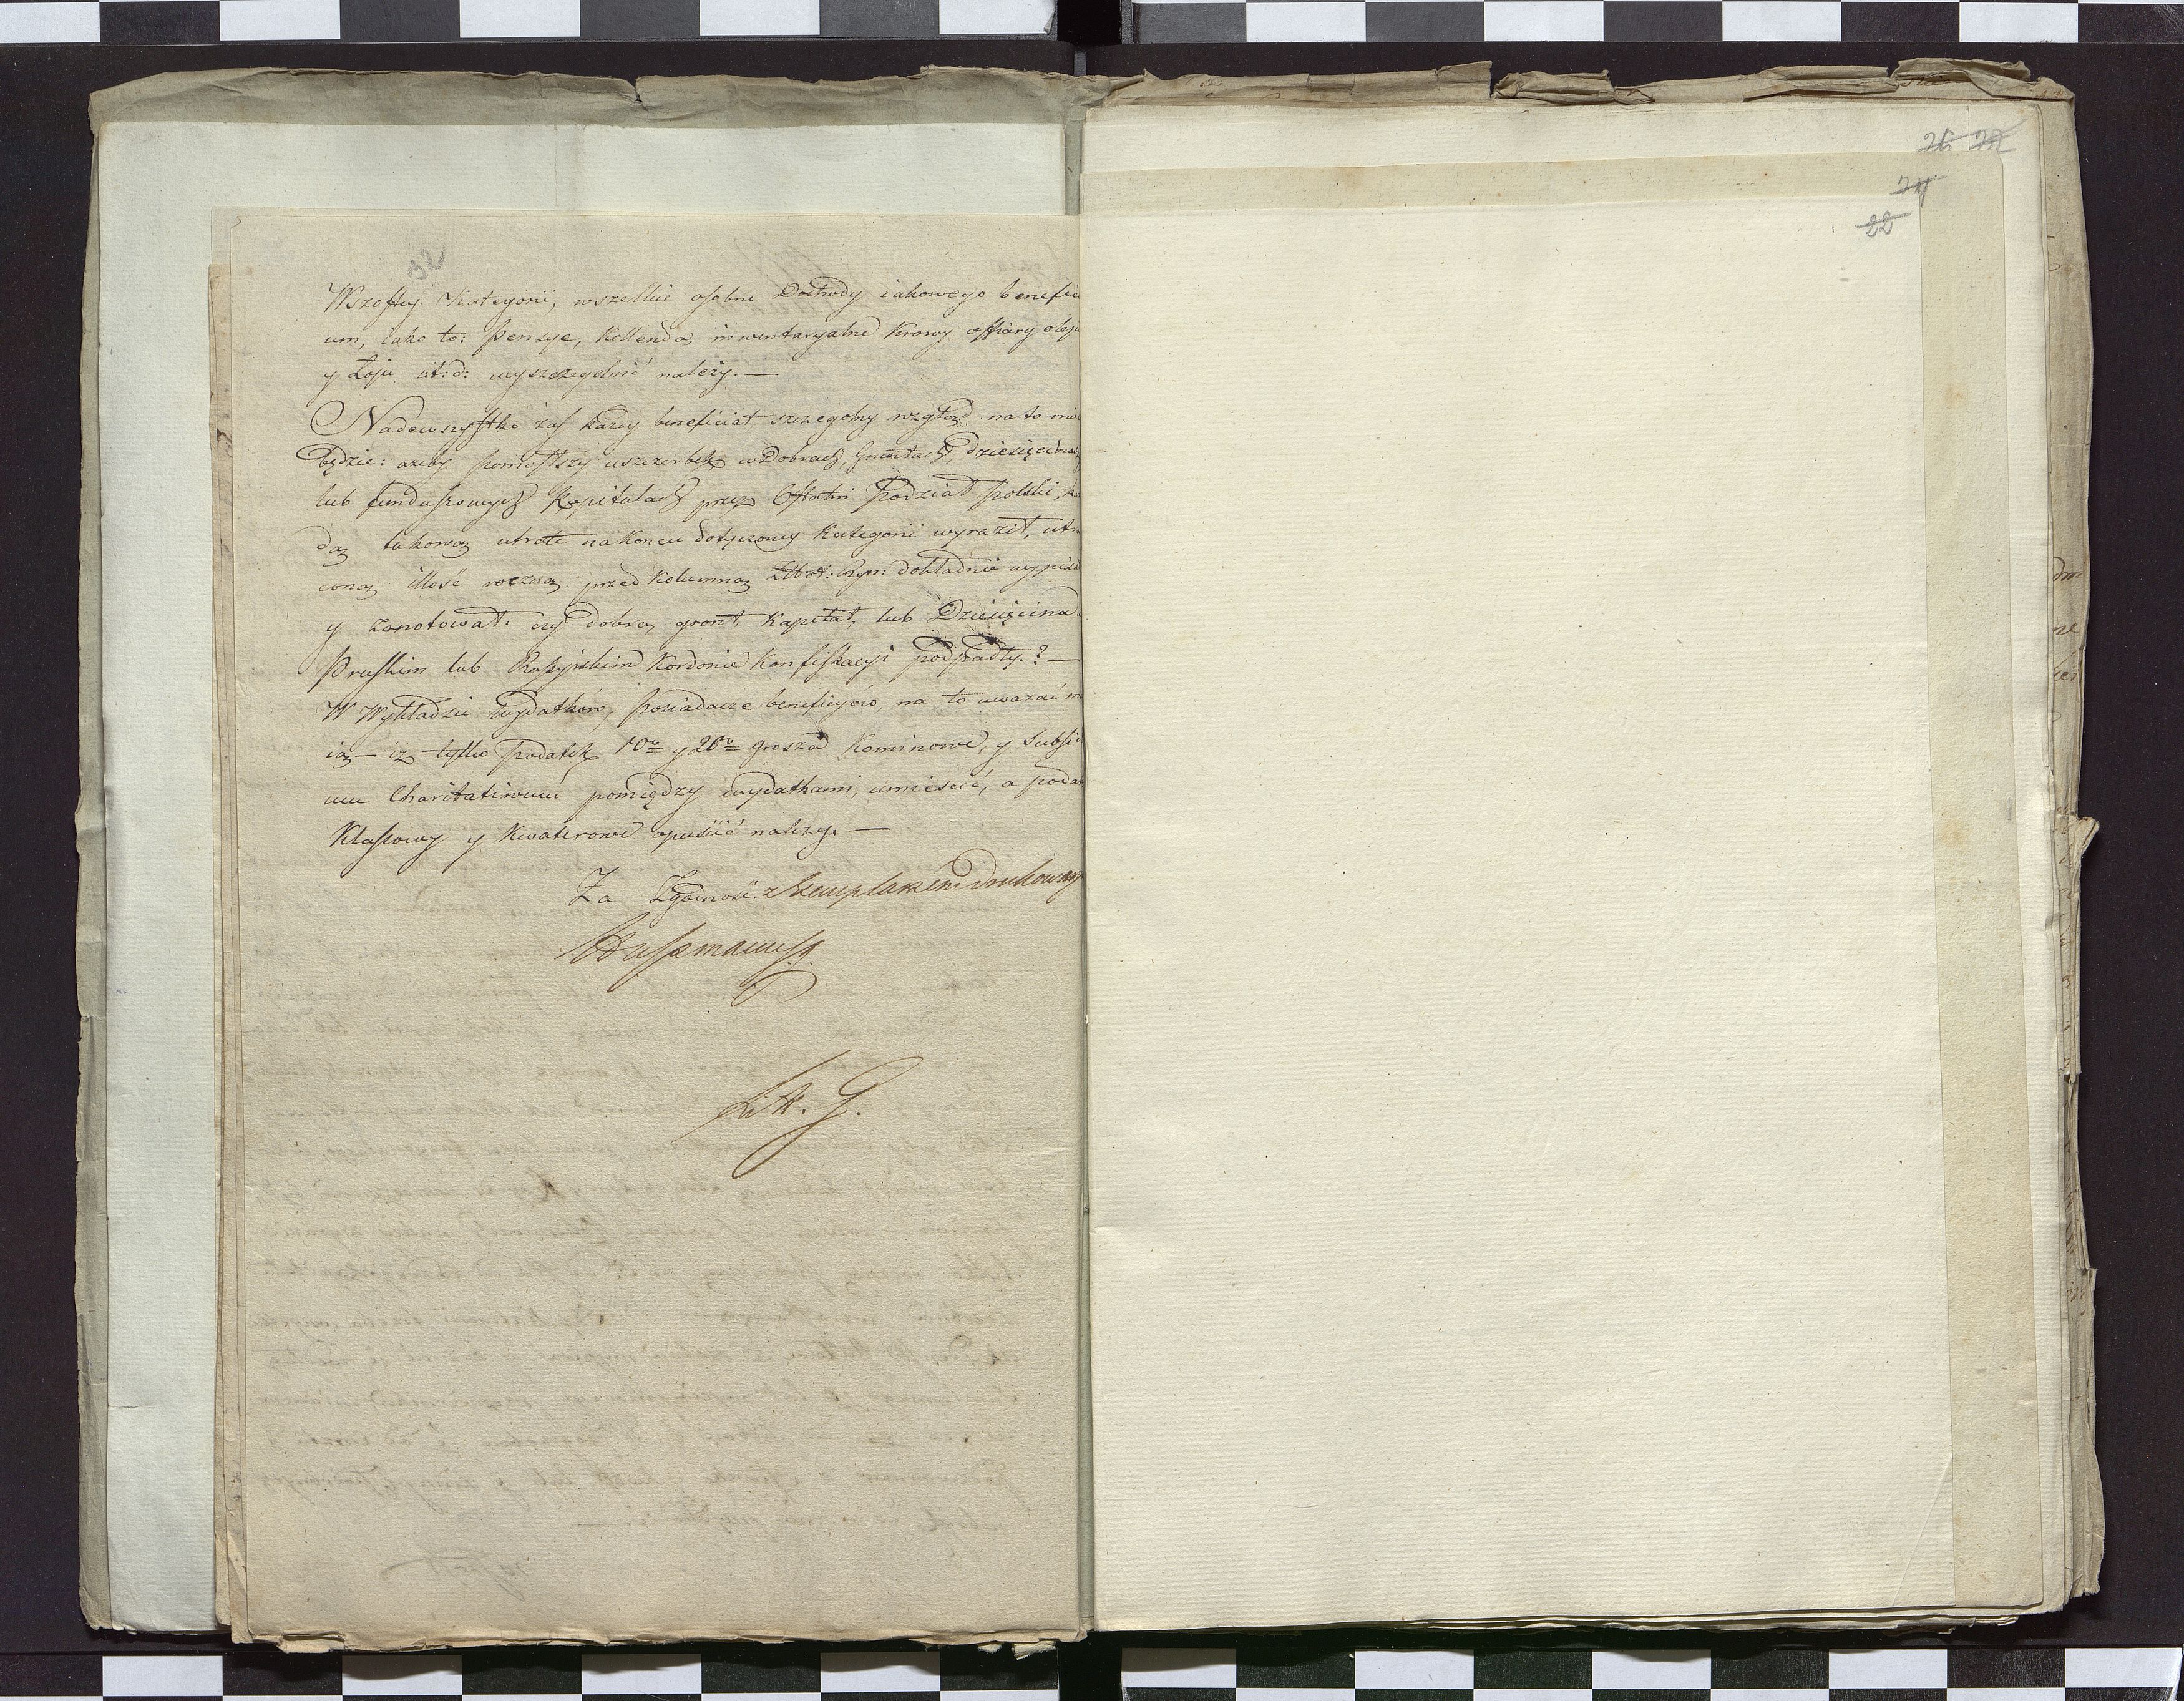 32
W szostey Kategorii, wszelkie osobne Dochody iakowego benefici
um, iako to: Pensye, Kollenda, inwentaryalne Krowy offiary oleju
y Łoju it: d: wyszczegolnić należy. —
Nadewszystko zaś każdy beneficiat szczegolny wzgląd na to mieć
będzie: azeby poniosłszy uszczerbek w Dobrach, Gruntach, dziesięcinach
lub funduszowych Kapitałach przez Ostatni Podział Polski,
takową utratę na koncu dotyczoney Kategorii wyraził, utra
coną illość roczną przed Kolumną dokładnie wypisał
y zanotował: czy dobra, gront, Kapitał, lub Dziesięcina
Pruskim lub Rossyiskim Kordonie Konfiskacyi podpadły.? —
W Wykładzie wydatków, posiadacze beneficyów, na to uważać ma
ią — iż tylko Podatek 10º y 20º grosza Kominowe, y Subsidi
um Charitativum pomiędzy wydatkami, umieścić, a podatek
Klassowy y Kwaterowe opuścić należy. —
Za Zgodność z Exemplarzem drukowanym
Litt. G.
26 22
24
22